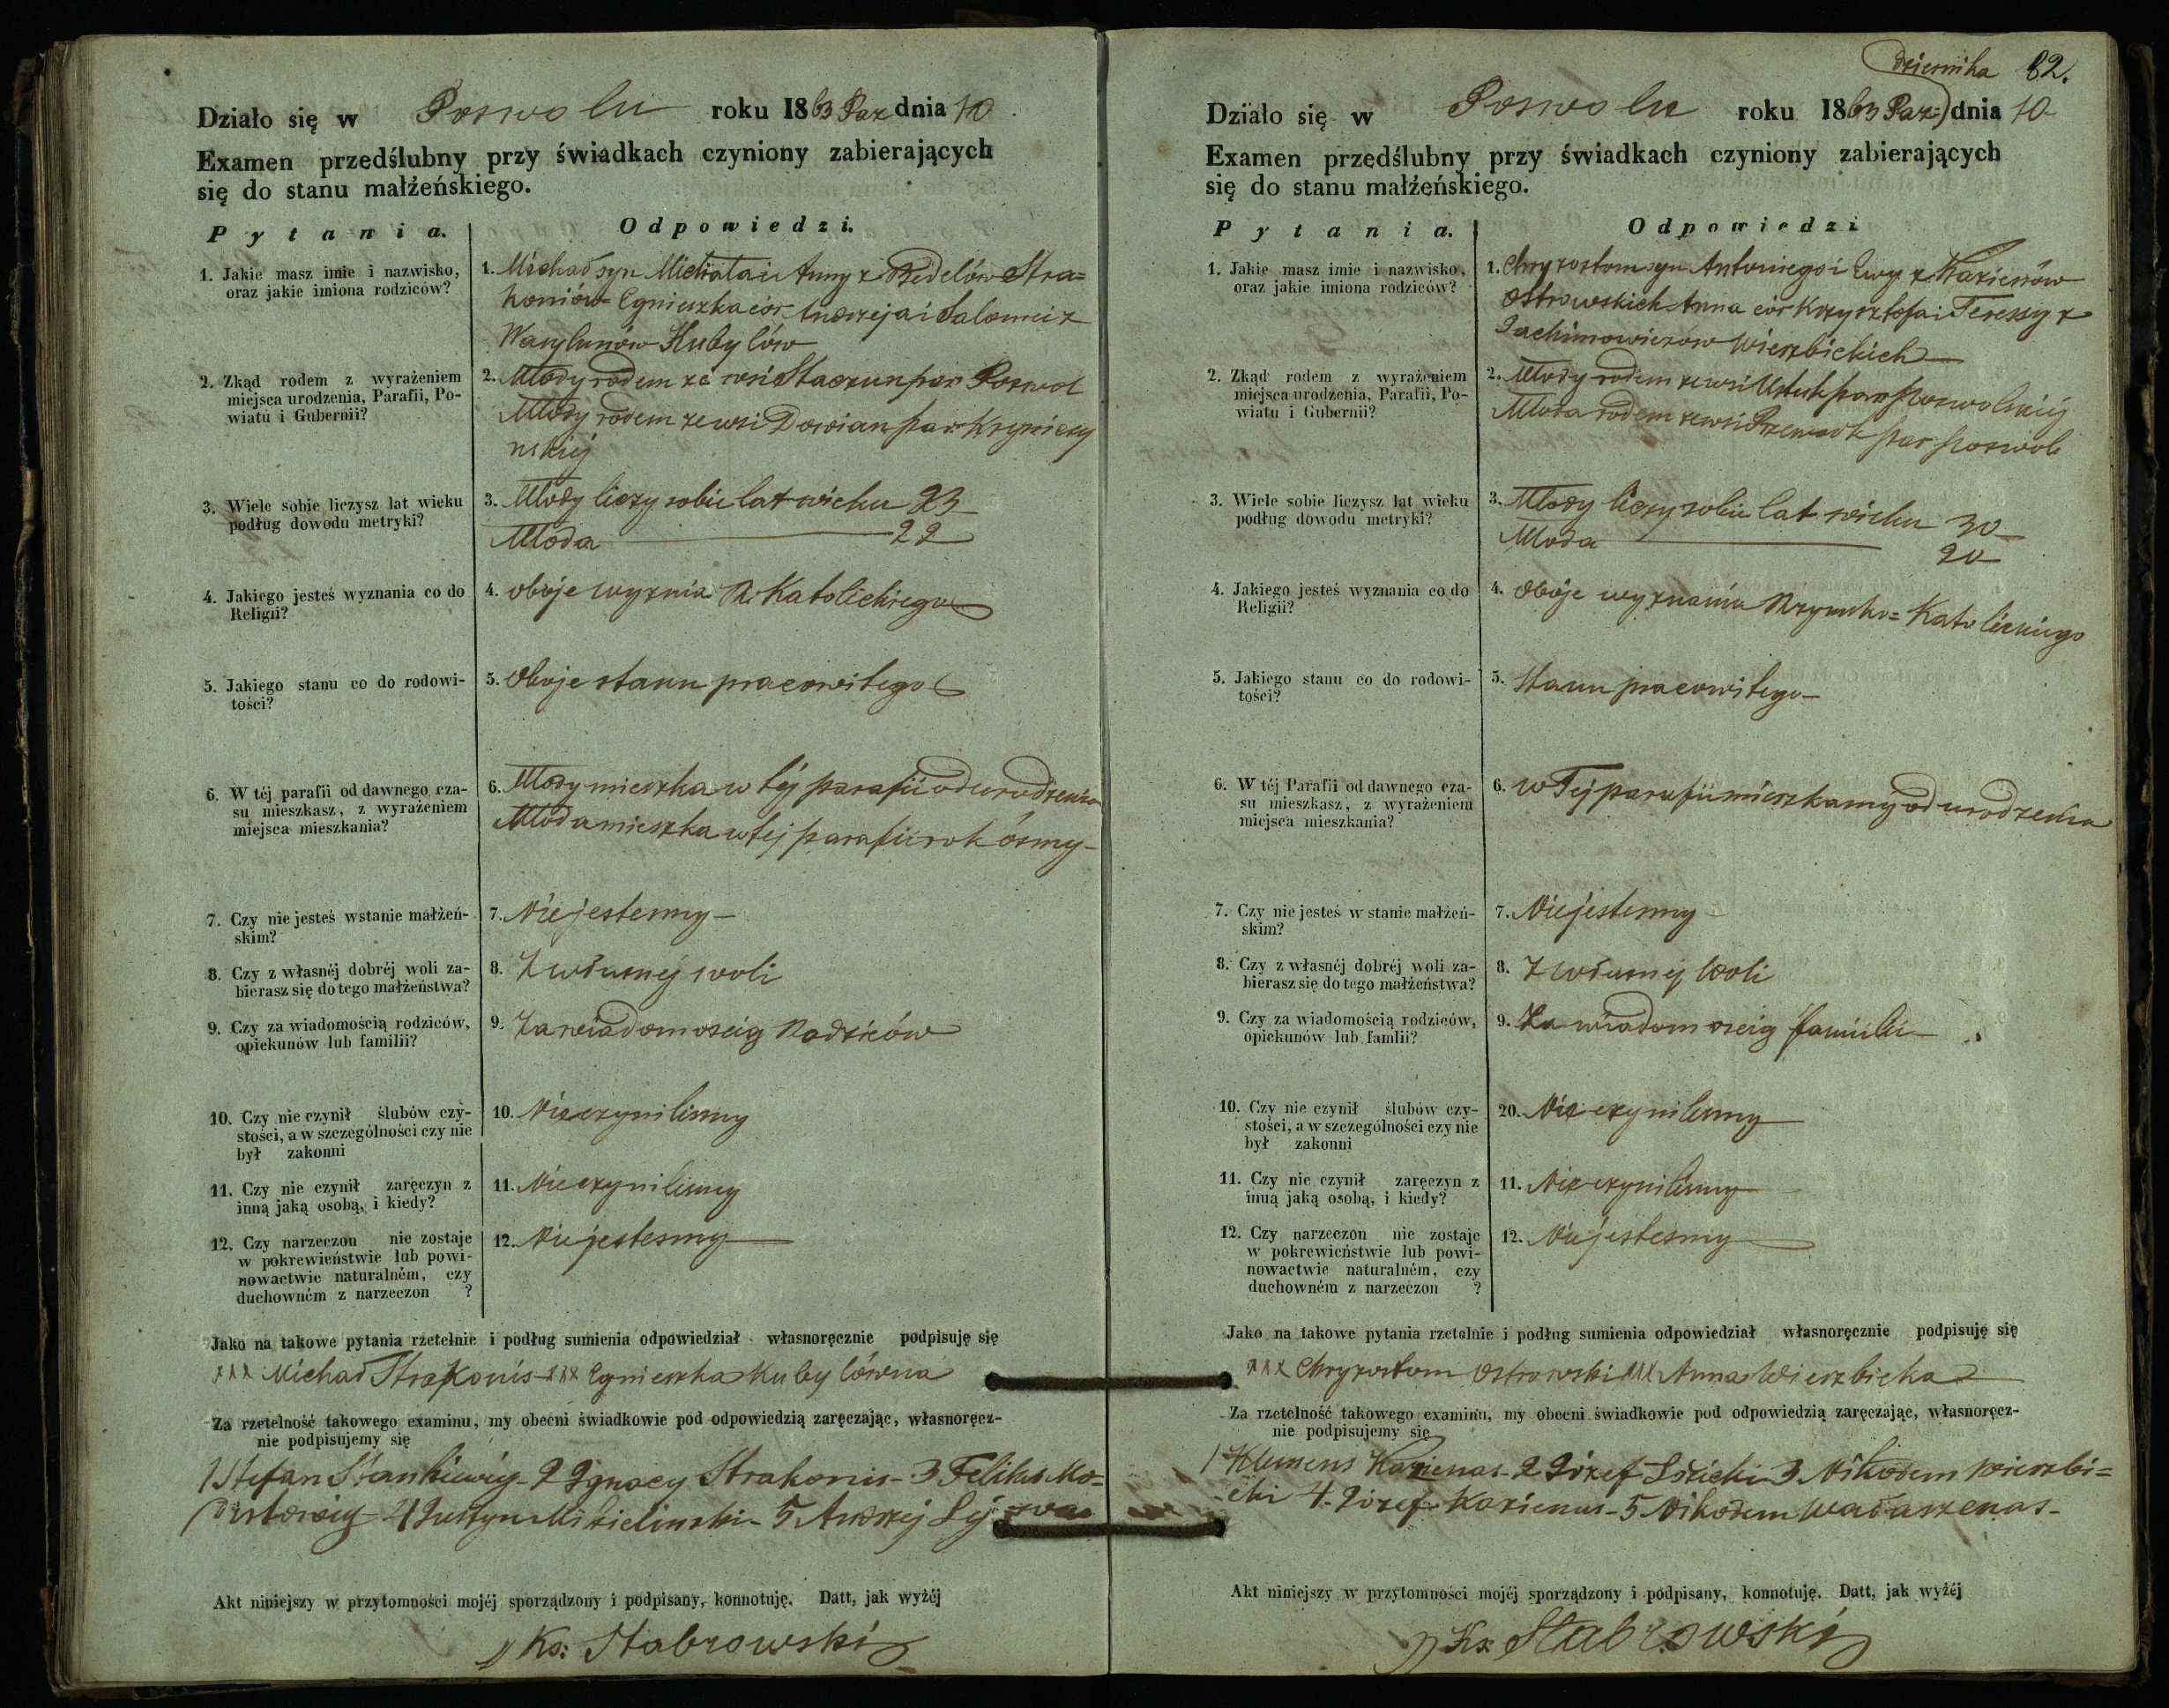 Działo się w Poswolu roku 1863 Paz dnia 10
Examen przedślubny przy świadkach czyniony zabierających
się do stanu małżeńskiego.
Pytania.
Odpowiedzi.
1. Jakie masz imie i nazwisko,
oraz jakie imiona rodziców?
1. Michał syn Michała i Anny z Bedelów Stra=
koniów Egnieszka cór Andrzeja i Salomei z
Kubylów
2. Zkąd rodem z wyrażeniem
miejsca urodzenia, Parafii, Po-
wiatu i Gubernii?
2. Młody rodem ze wsi Staczun par Poswol
Młody rodem ze wsi Dowian par Kryniczy
nskiej
3. Wiele sobie liczysz lat wieku
podług dowodu metryki?
3. Młody liczy sobie lat wieku 23
Młoda 22
4. Jakiego jesteś wyznania co do
Religii?
4. oboje wyznia R. Katolickiego
5. Jakiego stanu co do rodowi-
tości?
5. Oboje stanu pracowitego
6. W téj parafii od dawnego cza-
su mieszkasz, z wyrażeniem
miejsca mieszkania?
6. Młody mieszka w téj parafii od urodzenia
Młoda mieszka w tej parafii rok ósmy-
7. Czy nie jesteś wstanie małżeń-
skim?
7. Nie jestesmy-
8. Czy z własnéj dobréj woli za-
bierasz się do tego małżeństwa?
8. Z własnéj woli
9. Czy za wiadomością rodziców,
opiekunów lub familii?
9. Za wiadomoscią Rodziców
10. Czy nie czynił ślubów czy-
stości, a w szczególności czy nie
był zakonni
10. Nie czynilismy
11. Czy nie czynił zaręczyn z
inną jaką osobą, i kiedy?
11. Nie czynilismy
12. Czy narzeczon nie zostaje
w pokrewieństwie lub powi-
nowactwie naturalném, czy
duchowném z narzeczon ?
12. Nie jestesmy
Jako na takowe pytania rzetelnie i podług sumienia odpowiedział własnoręcznie podpisuję się
xxx Michał Strakonis xxx Egnieszka Kubylówna
Za rzetelność takowego examinu, my obecni świadkowie pod odpowiedzią zaręczając, własnoręcz-
nie podpisujemy się
1 Stefan Stankiewicz - 2 Ignacy Strakonis - 3 Feliks
4 Justyn - 5 Andrzej
Akt niniejszy w przytomności mojéj sporządzony i podpisany, konnotuję. Datt, jak wyżéj
Ks: Stabrowski
dziernika 82.
Działo się w Poswolu roku 1863 Paz=) dnia 10
Examen przedślubny przy świadkach czyniony zabierających
się do stanu małżeńskiego.
Pytania.
Odpowiedzi
1. Jakie masz imie i nazwisko,
oraz jakie imiona rodziców?
1. Chryzostom syn Antoniego i Ewy z Kazienów
Ostrowskich Anna cór Krzysztofa i Teressy z
Jachimowiczów Wierzbickich
2. Zkąd rodem z wyrażeniem
miejsca urodzenia, Parafii, Po-
wiatu i Gubernii?
2. Młody rodem ze wsi par Poswolskiéj
Młoda rodem ze wsi par poswol
3. Wiele sobie liczysz lat wieku
podług dowodu metryki?
3. Młody liczy sobie lat wieku 30
Młoda 20
4. Jakiego jesteś wyznania co do
Religii?
4. Oboje wyznania Rzymsko= Katolickiego
5. Jakiego stanu co do rodowi-
tości?
5. Stanu pracowitego-
6. W téj Parafii od dawnego cza-
su mieszkasz, z wyrażeniem
miejsca mieszkania?
6. w Téj parafii mieszkamy od urodzenia
7. Czy nie jesteś w stanie małżeń-
skim?
7. Nie jestesmy
8. Czy z własnéj dobréj woli za-
bierasz się do tego małżeństwa?
8. Z własnej Woli
9. Czy za wiadomością rodziców,
opiekunów lub famlii?
9. Za wiadomoscią familii
10. Czy nie czynił ślubów czy-
stości, a w szczególności czy nie
był zakonni
20. Nie czynilismy
11. Czy nie czynił zaręczyn z
inną jaką osobą, i kiedy?
11. Nie czynilismy
12. Czy narzeczon nie zostaje
w pokrewieństwie lub powi-
nowactwie naturalném, czy
duchowném z narzeczon ?
12. Nie jestesmy
Jako na takowe pytania rzetelnie i podług sumienia odpowiedział własnoręcznie podpisuję się
xxx Chryzostom Ostrowski xxx Anna Wierzbicka
Za rzetelność takowego examinu, my obecni świadkowie pod odpowiedzią zaręczając, własnoręcz-
nie podpisujemy się
1 Klemens Kazienas - 2 Józef 3 Nikodem Wierzbi=
cki 4. Józef Kazienus - 5 Nikodem
Akt niniejszy w przytomności mojéj sporządzony i podpisany, konnotuję. Datt, jak wyżéj
Ks Stabrowski